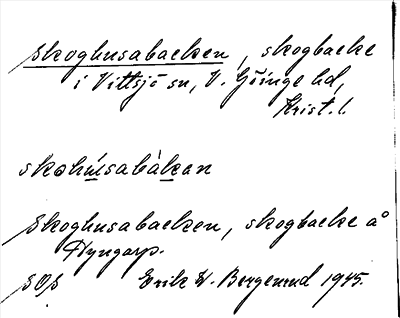 Skoghusabacken, skogbacke
i Vittsjö sn, V. Göinge hd,
Krist. l.
skohu̲sabàk̲an
Skoghusabacken, skogbacke å
Hyngarp.
SOS Erik W. Bergerud 1945.